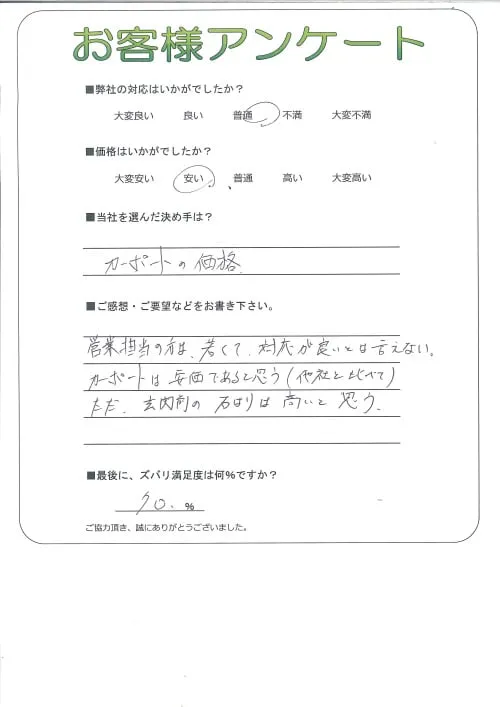 お客様アンケート
■弊社の対応はいかがでしたか？
大変良い 良い 普通 不満 大変不満
■価格はいかがでしたか？
大変安い 安い 普通 高い 大変高い
■当社を選んだ決め手は？
カーポートの価格
■ご感想・ご要望などをお書き下さい。
営業担当の方は、若くて、対応が良いとは言えない。
カーポートは安価であると思う(他社と比べて)
ただ、玄関前の石はりは高いと思う。
■最後に、ズバリ満足度は何％ですか？
70. %
ご協力頂き、誠にありがとうございました。